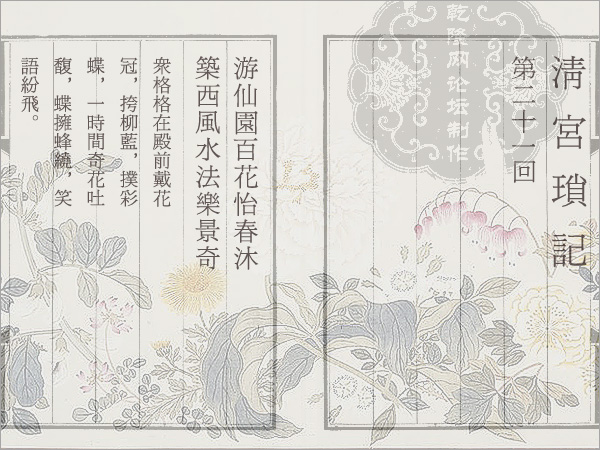 清宮瑣記
第二十一回
乾隆网论坛制作
游仙園百花怡春沐
築西風水法樂景奇
衆格格在殿前戴花
冠，挎柳藍，撲彩
蝶，一時間奇花吐
馥，蝶擁蜂繞，笑
語紛飛。